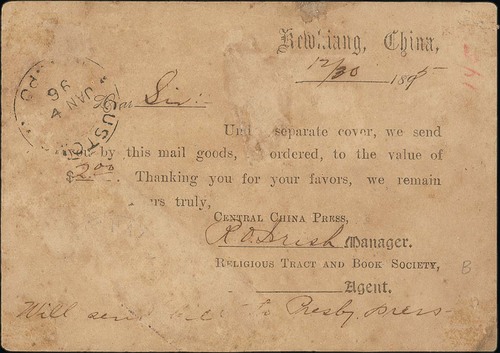 Kewkiang, China,
12/30 1895
CUSTOMS
JAN 4 96
Dear Sir:
Und separate cover, we send
by this mail goods, ordered, to the value of
$2.00. Thanking you for your favors, we remain
rs truly,
CENTRAL CHINA PRESS,
R O Irish Manager.
RELIGIOUS TRACT AND BOOK SOCIETY,
Agent.
Will send to Presby. press